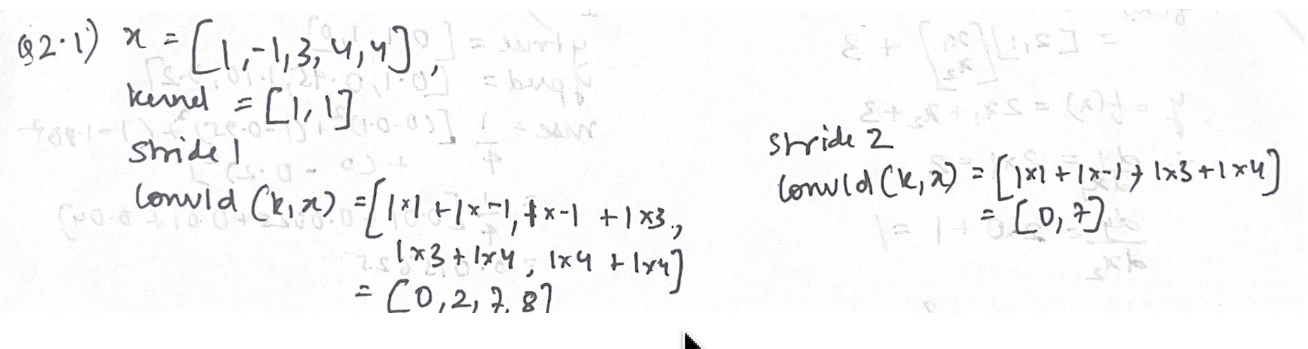 Q2.1) x = [1,-1,3,4,4],
kernel = [1,1]
stride 1
Conv1d (k,x) = [1×1 + 1×-1, 1×-1 + 1×3,
1×3 + 1×4, 1×4 + 1×4]
= [0,2,7,8]
stride 2
Conv1d (k,x) = [1×1 + 1×-1, 1×3 + 1×4]
= [0,7]